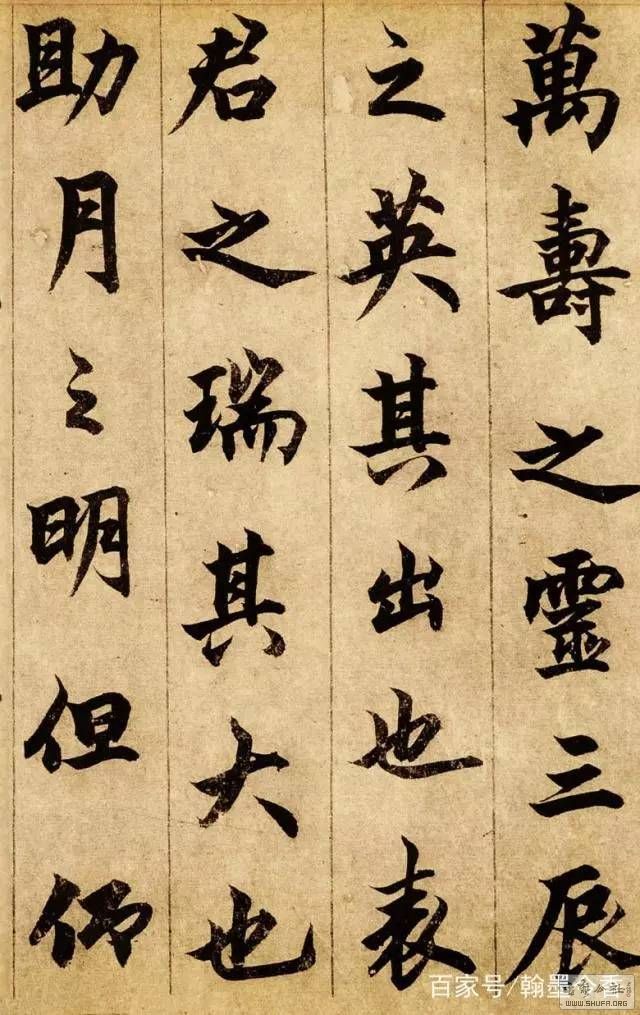 萬壽之靈三辰
之英其出也表
君之瑞其大也
助月之明但仰
百家号/翰墨今香
WWW.SHUFA.ORG